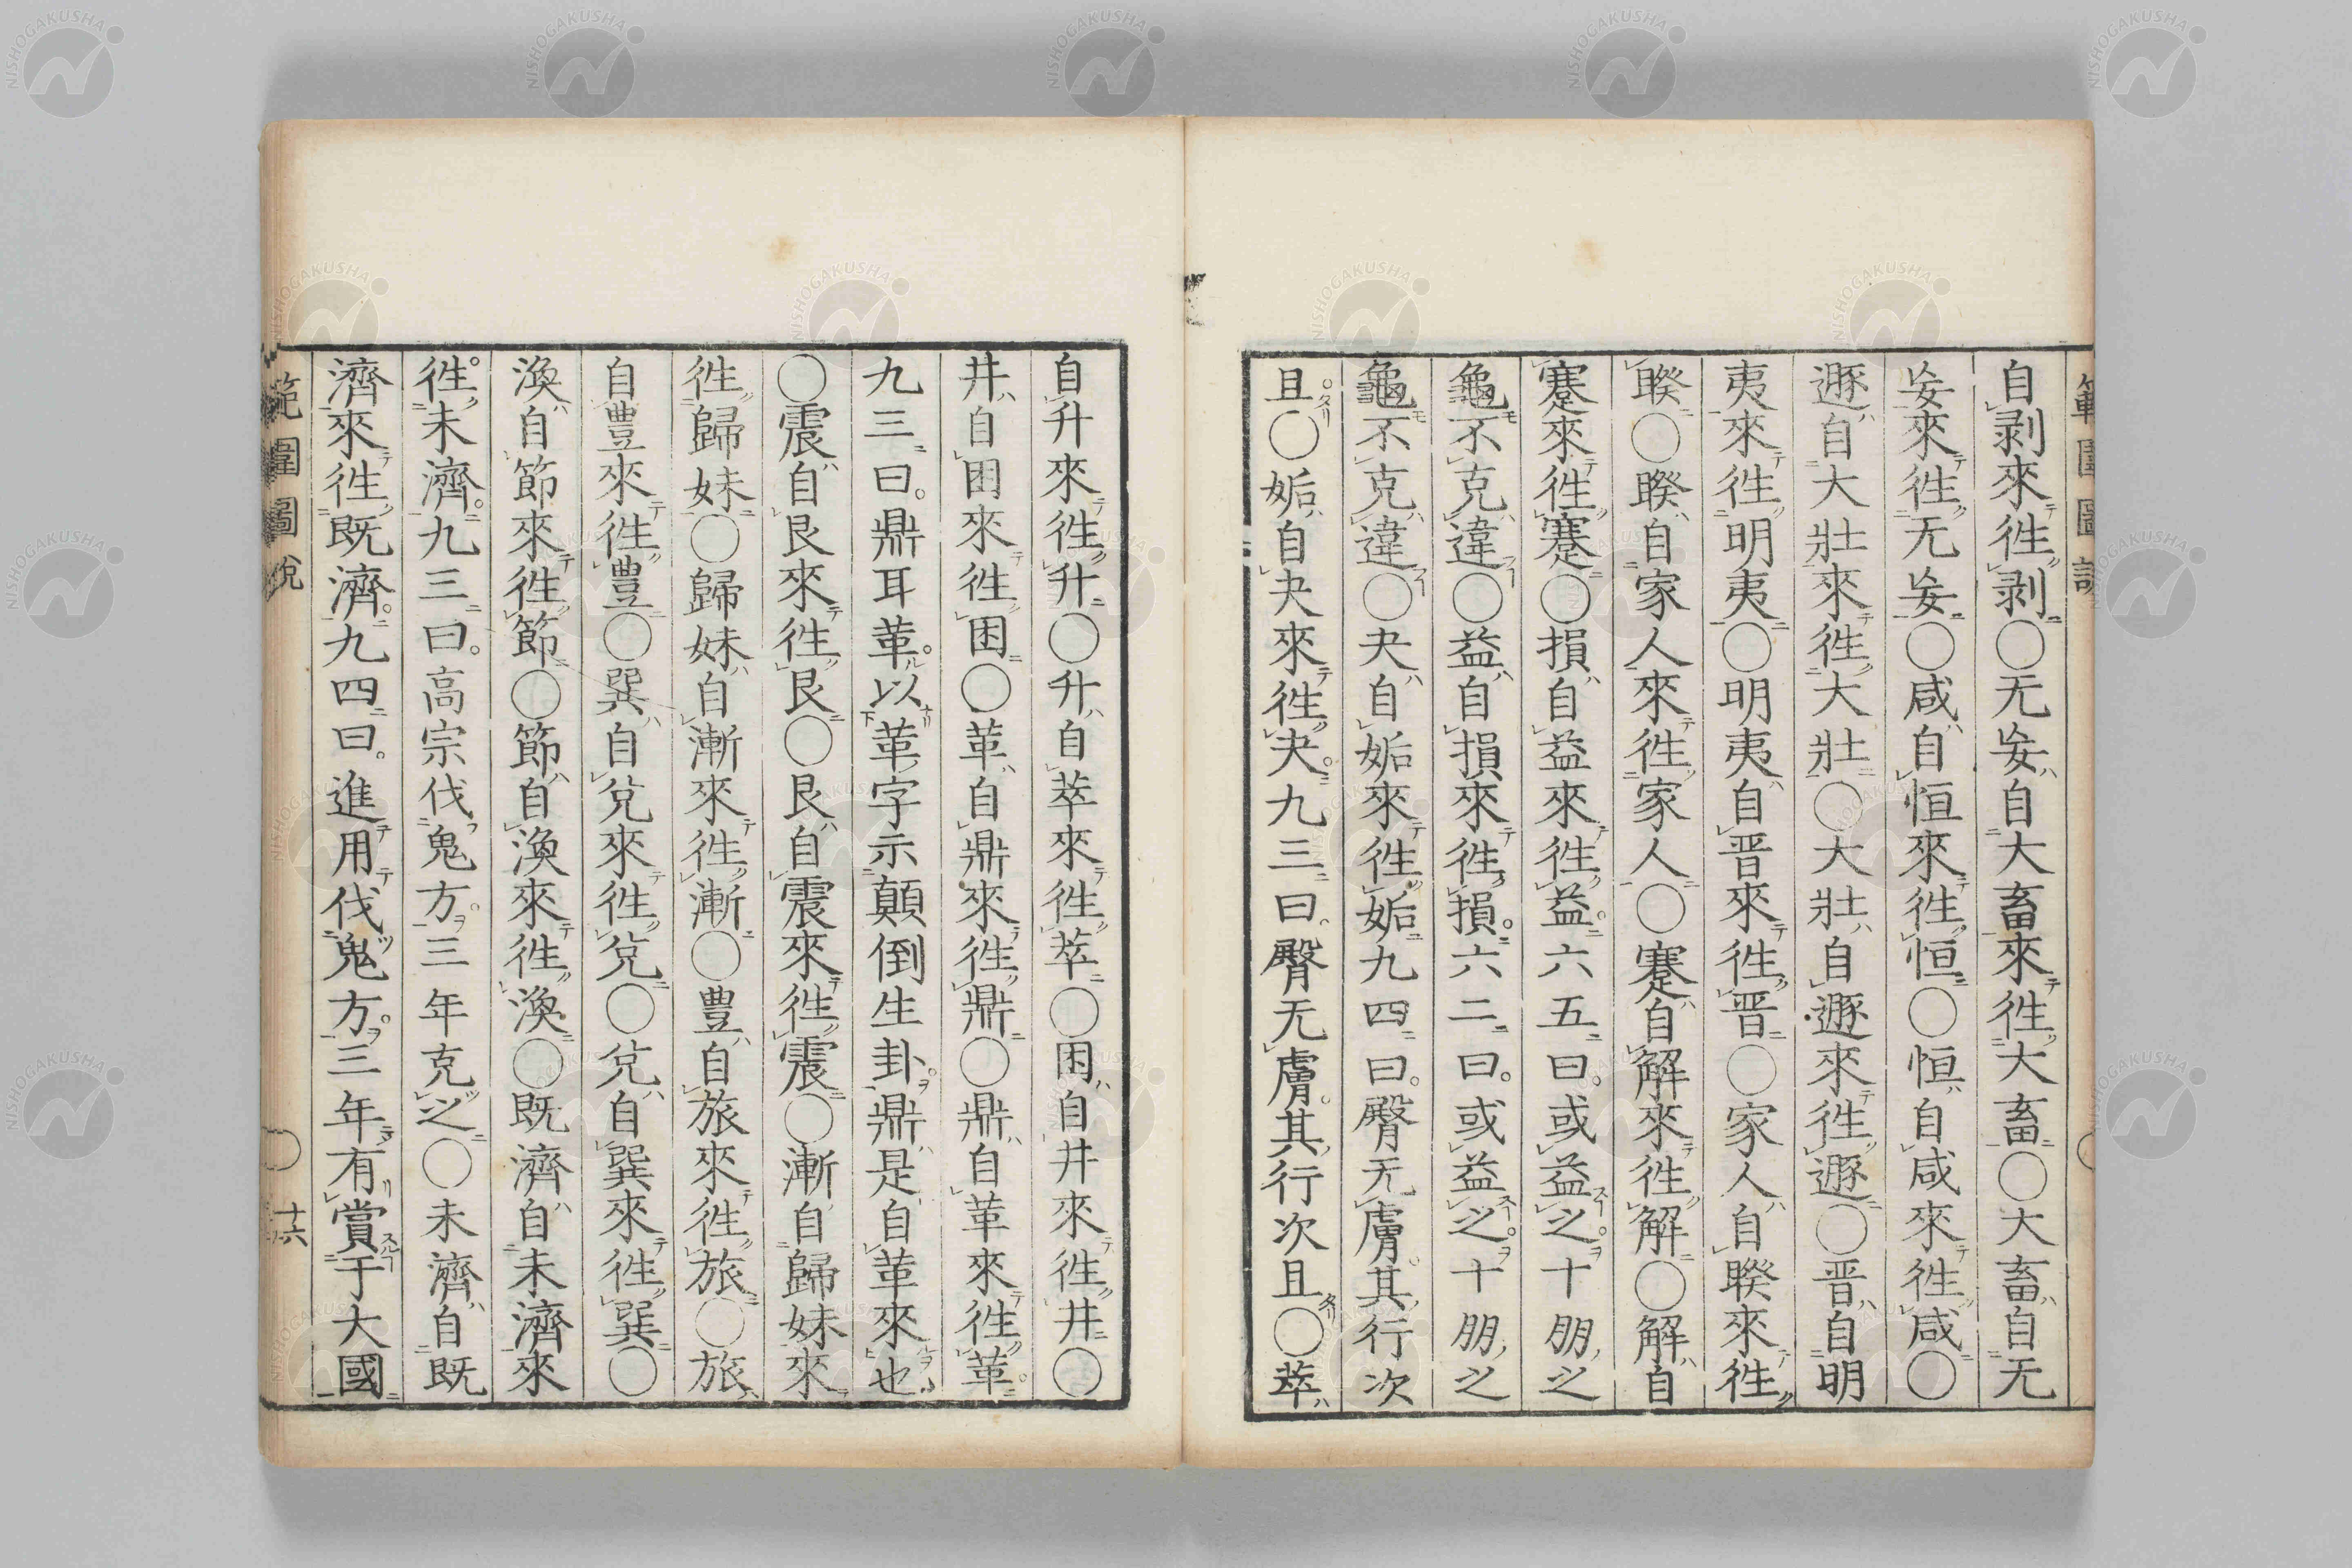 自剥來徃剥○无妄自大畜來徃大畜○大畜自无
妄來徃无妄○咸自恒來徃恒○恒自咸來徃咸○
遯自大壯來徃大壯○大壯自遯來徃遯○晋自明
夷來徃明夷○明夷自晋來徃晋○家人自睽來徃
睽○睽自家人來徃家人○蹇自解來徃解○解自
蹇來徃蹇○損自益來徃益六五曰或益之十朋之
龜不克違○益自損來徃損六二曰或益之十朋之
龜不克違○夬自姤來徃姤九四曰臀无膚其行次
且○姤自夬來徃夬九三曰臀无膚其行次且○萃
自升來徃升○升自萃來徃萃○困自井來徃井○
井自困來徃困○革自鼎來徃鼎○鼎自革來徃革
九三曰鼎耳革以革字示顛倒生卦鼎是自革來也
○震自艮來徃艮○艮自震來徃震○漸自歸妹來
徃歸妹○歸妹自漸來徃漸○豊自旅來徃旅○旅
自豊來徃豊○巽自兌來徃兌○兌自巽來徃巽○
渙自節來徃節○節自渙來徃渙○既濟自未濟來
徃未濟九三曰高宗伐鬼方三年克之○未濟自既
濟來徃既濟九四曰進用伐鬼方三年有賞于大國
範圍圖說
○十六
NISHOGAKUSHA